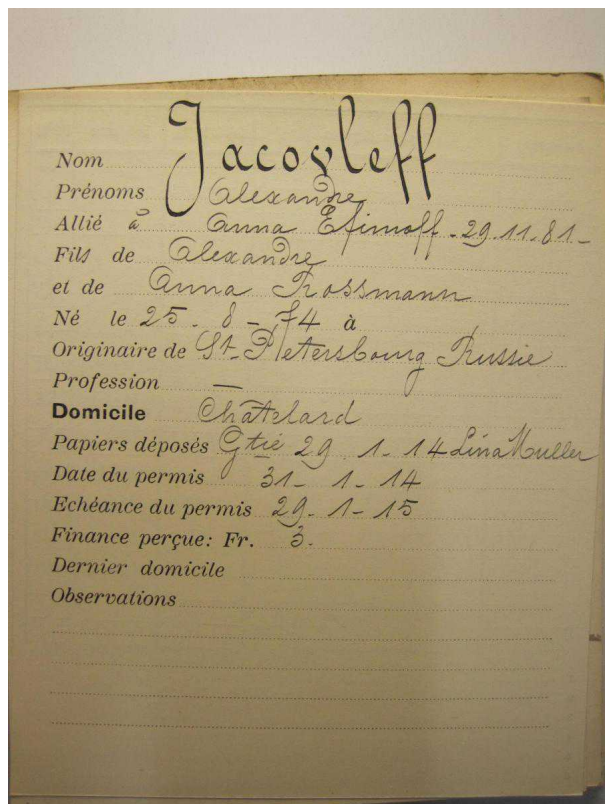 Nom Jacovleff
Prénoms Alexandre
Allié à Anna Efimoff - 29.11.81 -
Fils de Alexandre
et de Anna Rossmann
Né le 25. 8 - 74 à
Originaire de St-Petersbourg Russie
Profession —
Domicile Châtelard
Papiers déposés Gtie 29 1. 14 Lina Muller
Date du permis 31 - 1 - 14
Echéance du permis 29. 1 - 15
Finance perçue: Fr. 3.
Dernier domicile
Observations